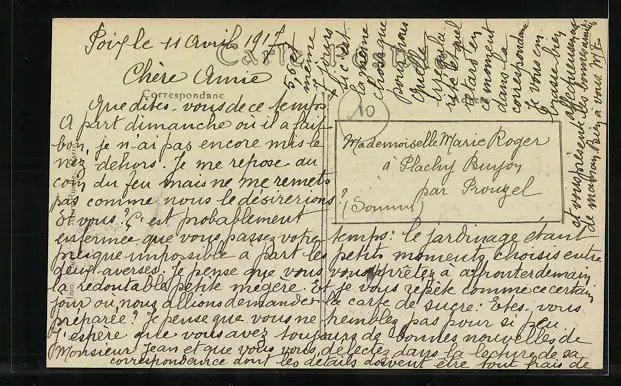 Poix le 11 Avril 1917
Chère Amie
Correspondance
Que dites-vous de ce temps
A part dimanche où il a fait
bon, je n'ai pas encore mis le
nez dehors. Je me repose au
coin du feu mais ne me remets
pas comme nous le désirerions
Et vous? C'est probablement
enfermée que vous passez votre temps: le jardinage étant
presque impossible à part les petits moments choisis entre
deux averses. Je pense que vous vous apprêtez à affronter demain
la redoutable petite mégère. Et je vous répète comme ce certain
jour où nous allions demander la carte de sucre: Etes-vous
préparée? Je pense que vous ne tremblez pas pour si peu
J'espère que vous avez toujours de bonnes nouvelles de
Monsieur Jean et que vous vous délectez dans la lecture de sa
correspondance dont les détails doivent être tout frais de
même
c'est
la même
chose que
pour nous
Quelle
irrégula
rité et quel
retard en
ce moment
dans la
correspondance
Je vous em
brasse bien
affectueusement
et vous présente les bonnes amitiés
de maman. Bien à vous. M.F.
10
Mademoiselle Marie Roger
à Plachy Buyon
par Prouzel
(Somme)